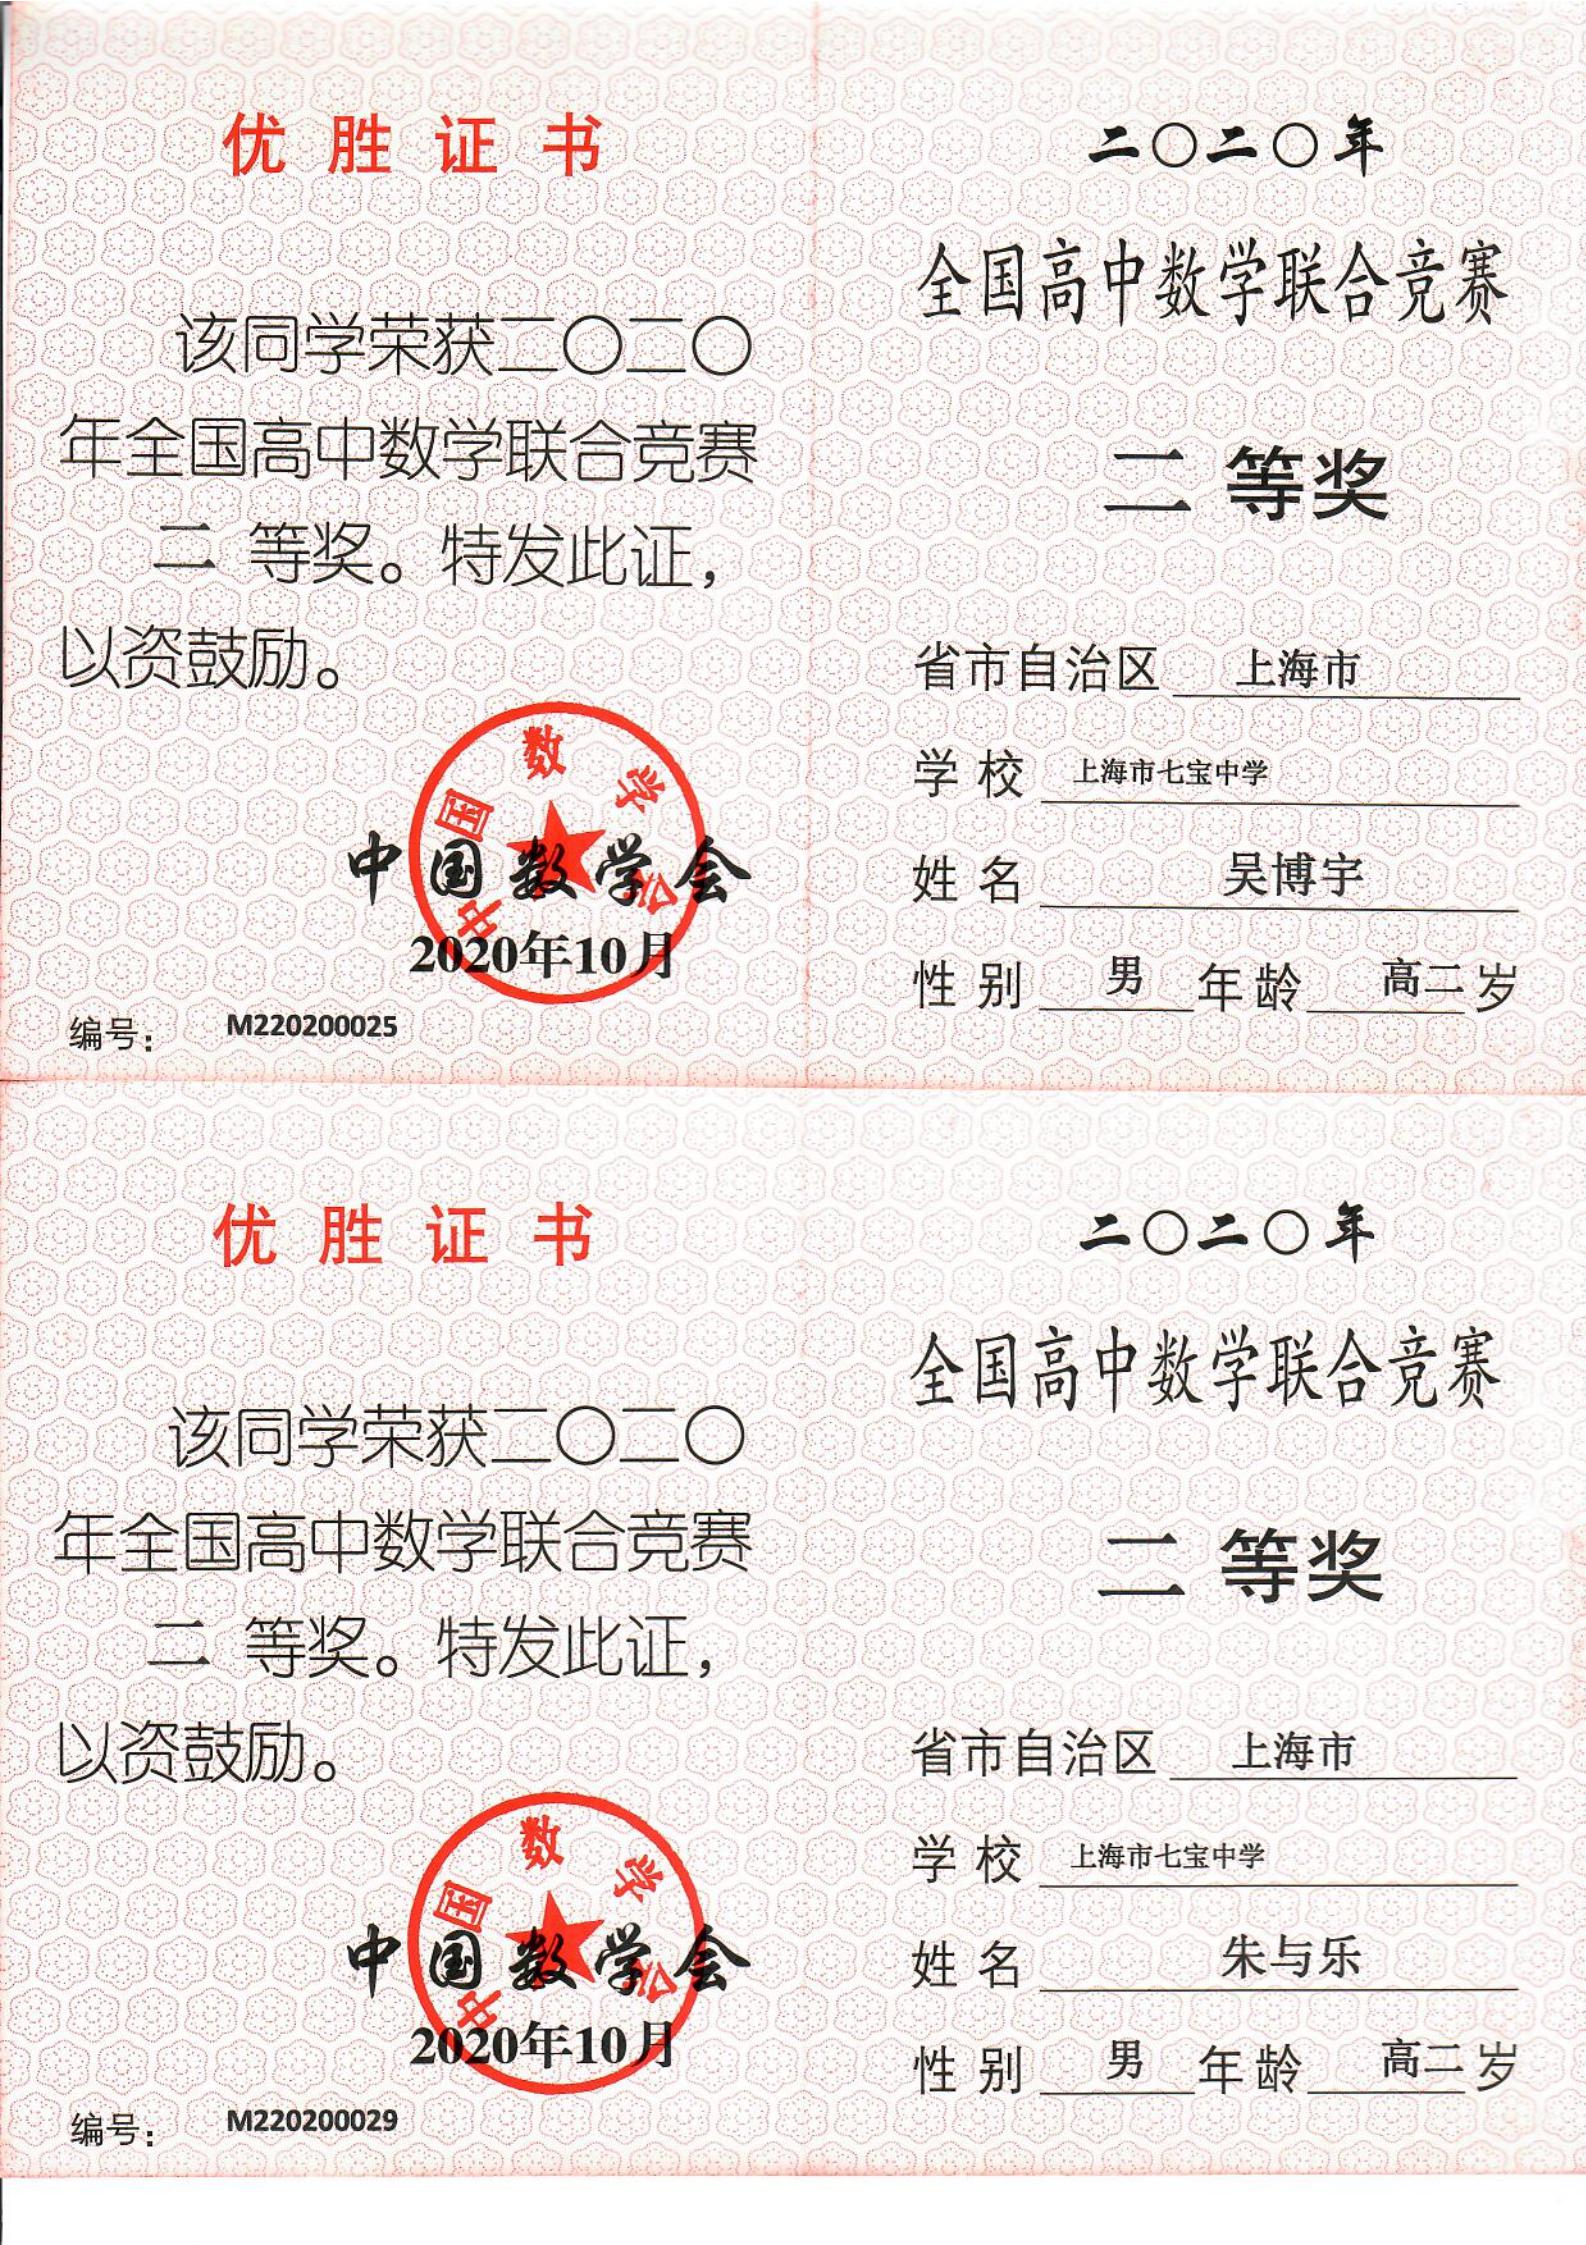 优胜证书
该同学荣获二〇二〇
年全国高中数学联合竞赛
二 等奖。特发此证，
以资鼓励。
中国数学会
中国数学会
2020年10月
编号： M220200025
二〇二〇年
全国高中数学联合竞赛
二 等奖
省市自治区 上海市
学校 上海市七宝中学
姓名 吴博宇
性别 男 年龄 高二 岁
优胜证书
该同学荣获二〇二〇
年全国高中数学联合竞赛
二 等奖。特发此证，
以资鼓励。
中国数学会
中国数学会
2020年10月
编号： M220200029
二〇二〇年
全国高中数学联合竞赛
二 等奖
省市自治区 上海市
学校 上海市七宝中学
姓名 朱与乐
性别 男 年龄 高二 岁